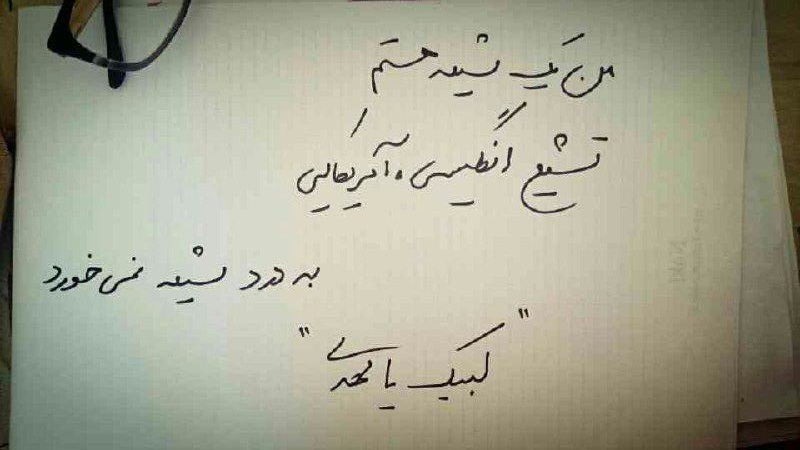 من یک شیعه هستم
تشیع انگلیسی و آمریکایی
به درد شیعه نمی خورد
"لبیک یا مهدی"